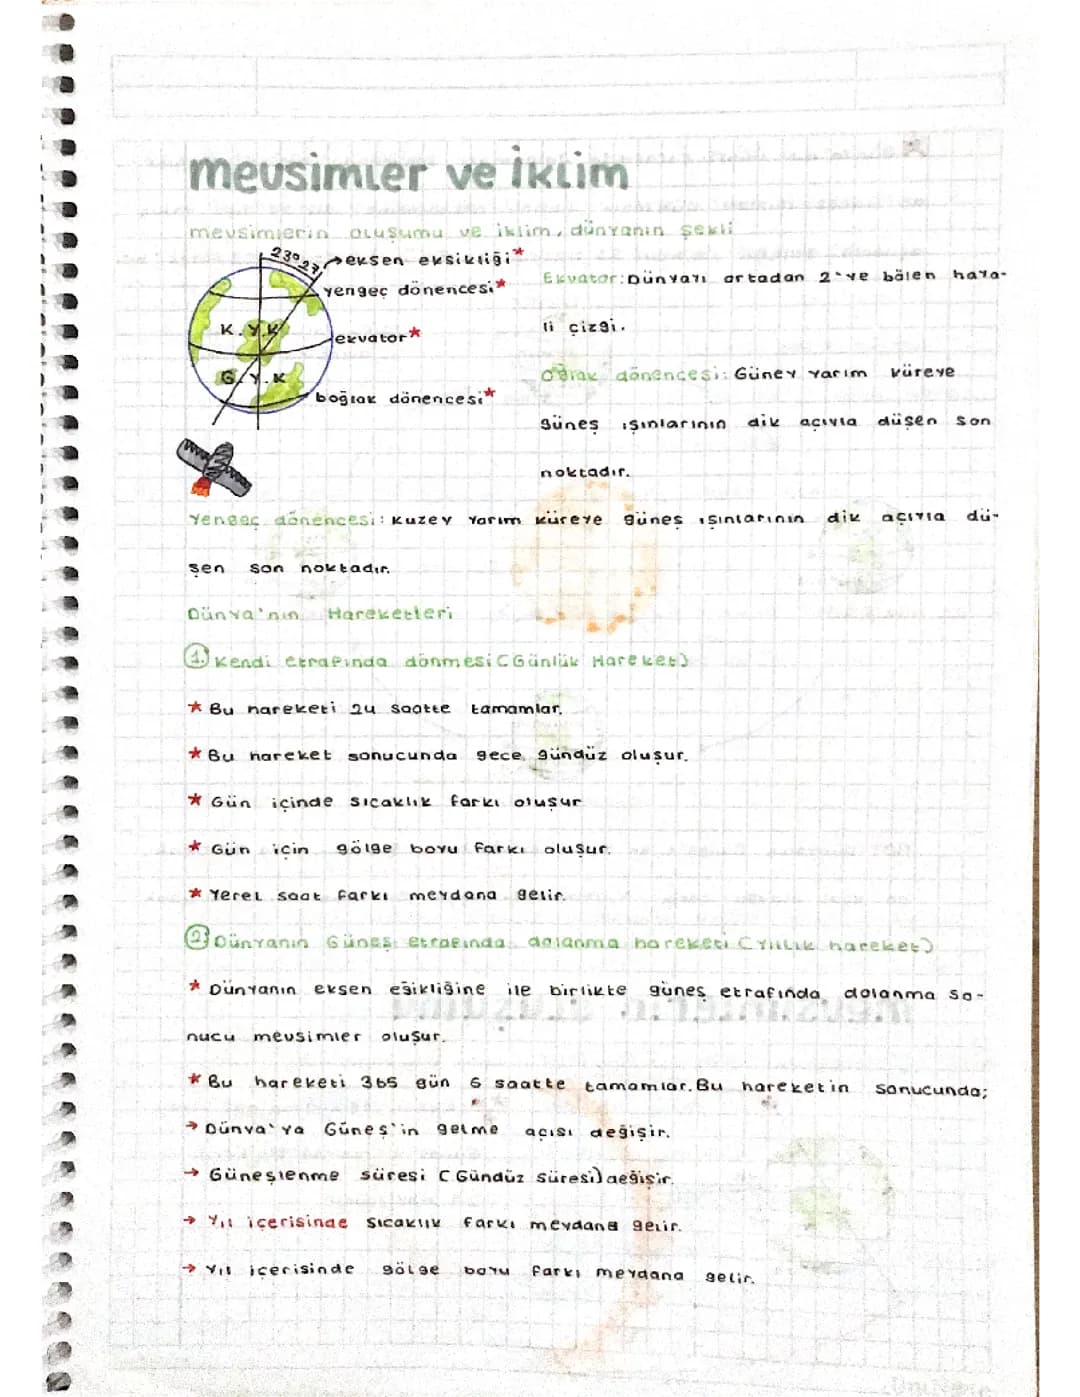 mevsimler ve iklim
mevsimlerin oluşumu ve iklim, dünyanın şekli
23°27' → eksen eksikliği*
yengeç dönencesi*
K.Y.K
ekvator*
G.Y.K
boğlak dönencesi*
Ekvator: Dünyayı ortadan 2'ye bölen haya-
li çizgi.
Oğlak dönencesi: Güney yarım küreye
güneş ışınlarının dik açıyla düşen son
noktadır.
Yengeç dönencesi: Kuzey yarım küreye güneş ışınlarının dik açıyla dü-
şen son noktadır.
Dünya'nın Hareketleri
1. Kendi etrafında dönmesi (Günlük Hareket)
* Bu hareketi 24 saatte tamamlar.
* Bu hareket sonucunda gece gündüz oluşur.
* Gün içinde sıcaklık farkı oluşur
* Gün için gölge boyu farkı oluşur.
* Yerel saat farkı meydana gelir.
2. Dünyanın Güneş etrafında dolanma hareketi (Yıllık hareket)
* Dünyanın eksen eğikliğine ile birlikte güneş etrafında dolanma so-
nucu mevsimler oluşur.
* Bu hareketi 365 gün 6 saatte tamamlar. Bu hareketin sonucunda;
→ Dünya'ya Güneş'in gelme açısı değişir.
→ Güneşlenme süresi (Gündüz süresi) değişir.
→ Yıl içerisinde sıcaklık farkı meydana gelir.
→ Yıl içerisinde gölge boyu farkı meydana gelir.